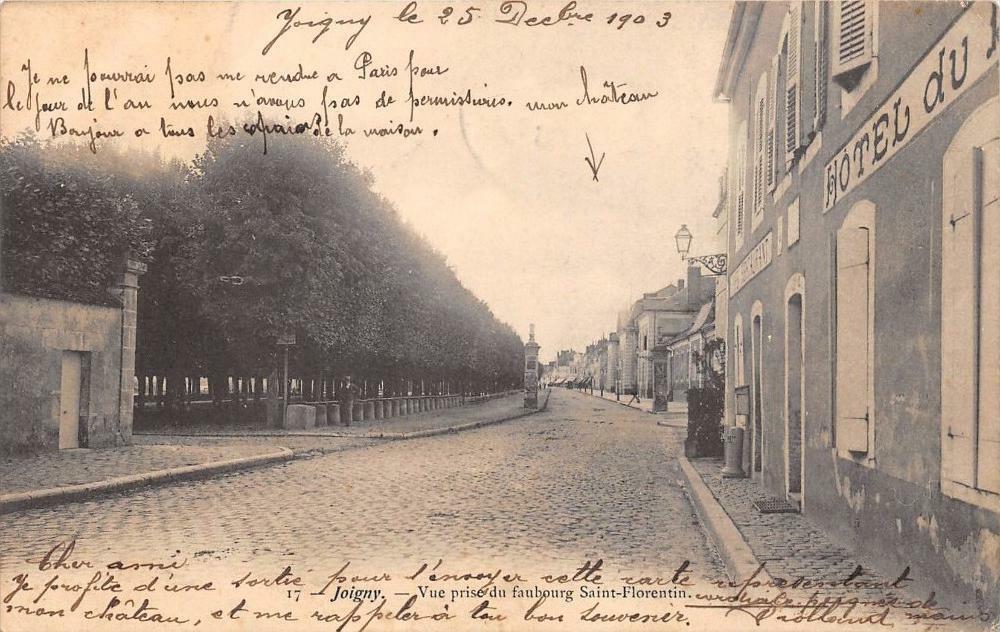 Joigny le 25 Decbre 1903
Je ne pourrai pas me rendre a Paris pour
le jour de l'an nous n'avons pas de permissions. mon chateau
Bonjour a tous les copains de la maison.
HÔTEL du
RESTAURANT
Cher ami
Je profite d'une sortie pour t'envoyer cette carte representant
17 — Joigny. — Vue prise du faubourg Saint-Florentin.
mon château, et me rappeler a ton bon souvenir.